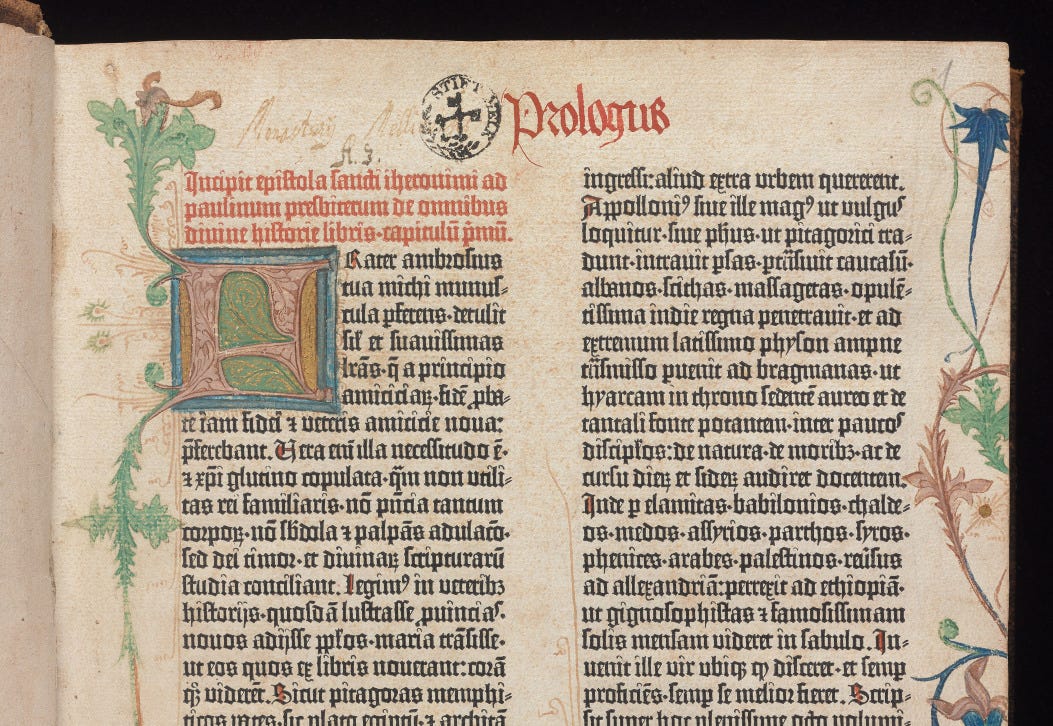 Prologus
STIFT MELK
A. 3.
Incipit epistola sancti iheronimi ad
paulinum presbiterum de omnibus
divine historie libris·capitulū p̄mū.
Frater ambrosius
tua michi munus-
cula ꝑferens·detulit
sil̄ et suavissimas
lrās·q̄ a principio
amiciciaꝝ·fidē ꝓba-
te iam fidei ⁊ veteris amicicie nova:
p̄ferebant. Vera em̄ illa necessitudo ē·
⁊ xp̄i glutino copulata·q̄m non utili-
tas rei familiaris·nō p̄ncia tantum
corpoꝝ·nō sbdola ⁊ palpās adulacō·
sed dei timor·et divinaꝝ scripturarū
studia conciliant. Legimꝰ in veteribꝫ
historijs·quosdā lustrasse ꝓvincias·
novos adijsse ppl̄os·maria trāsisse·
ut eos quos ex libris noverant: corā
qꝫ viderēt. Sicut pitagoras memphi-
ticos vates·sic plato egiptū·⁊ architā
ingressꝰ: aliud extra urbem quererent.
Appolloniꝰ sive ille magꝰ ut vulgus
loquitur·sive ph̄us·ut pitagorici tra-
dunt·intravit ꝑsas·ꝑtr̄sivit caucasū·
albanos·scithas·massagetas·opulē-
tissima indie regna penetravit·et ad
extremum latissimo physon ampne
tr̄smisso ꝑvenit ad bragmanas·ut
hyarcam in throno sedentē aureo et de
tantali fonte potantem·inter paucos
discipl̄os: de natura·de moribꝫ·ac de
cursu dieꝝ et sideꝝ audiret docentem.
Inde ꝑ elamitas·babilonios·chalde-
os·medos·assyrios·parthos·syros·
phenices·arabes·palestinos·reūsus
ad allexandriā: perrexit ad ethiopiā·
ut gignosophistas ⁊ famosissimam
solis mensam videret in sabulo. In-
venit ille vir ubiqꝫ qͦ disceret·et semꝑ
proficiēs·semꝑ se melior fieret. Scrip-
sit super hoc plenissime octo volumi-